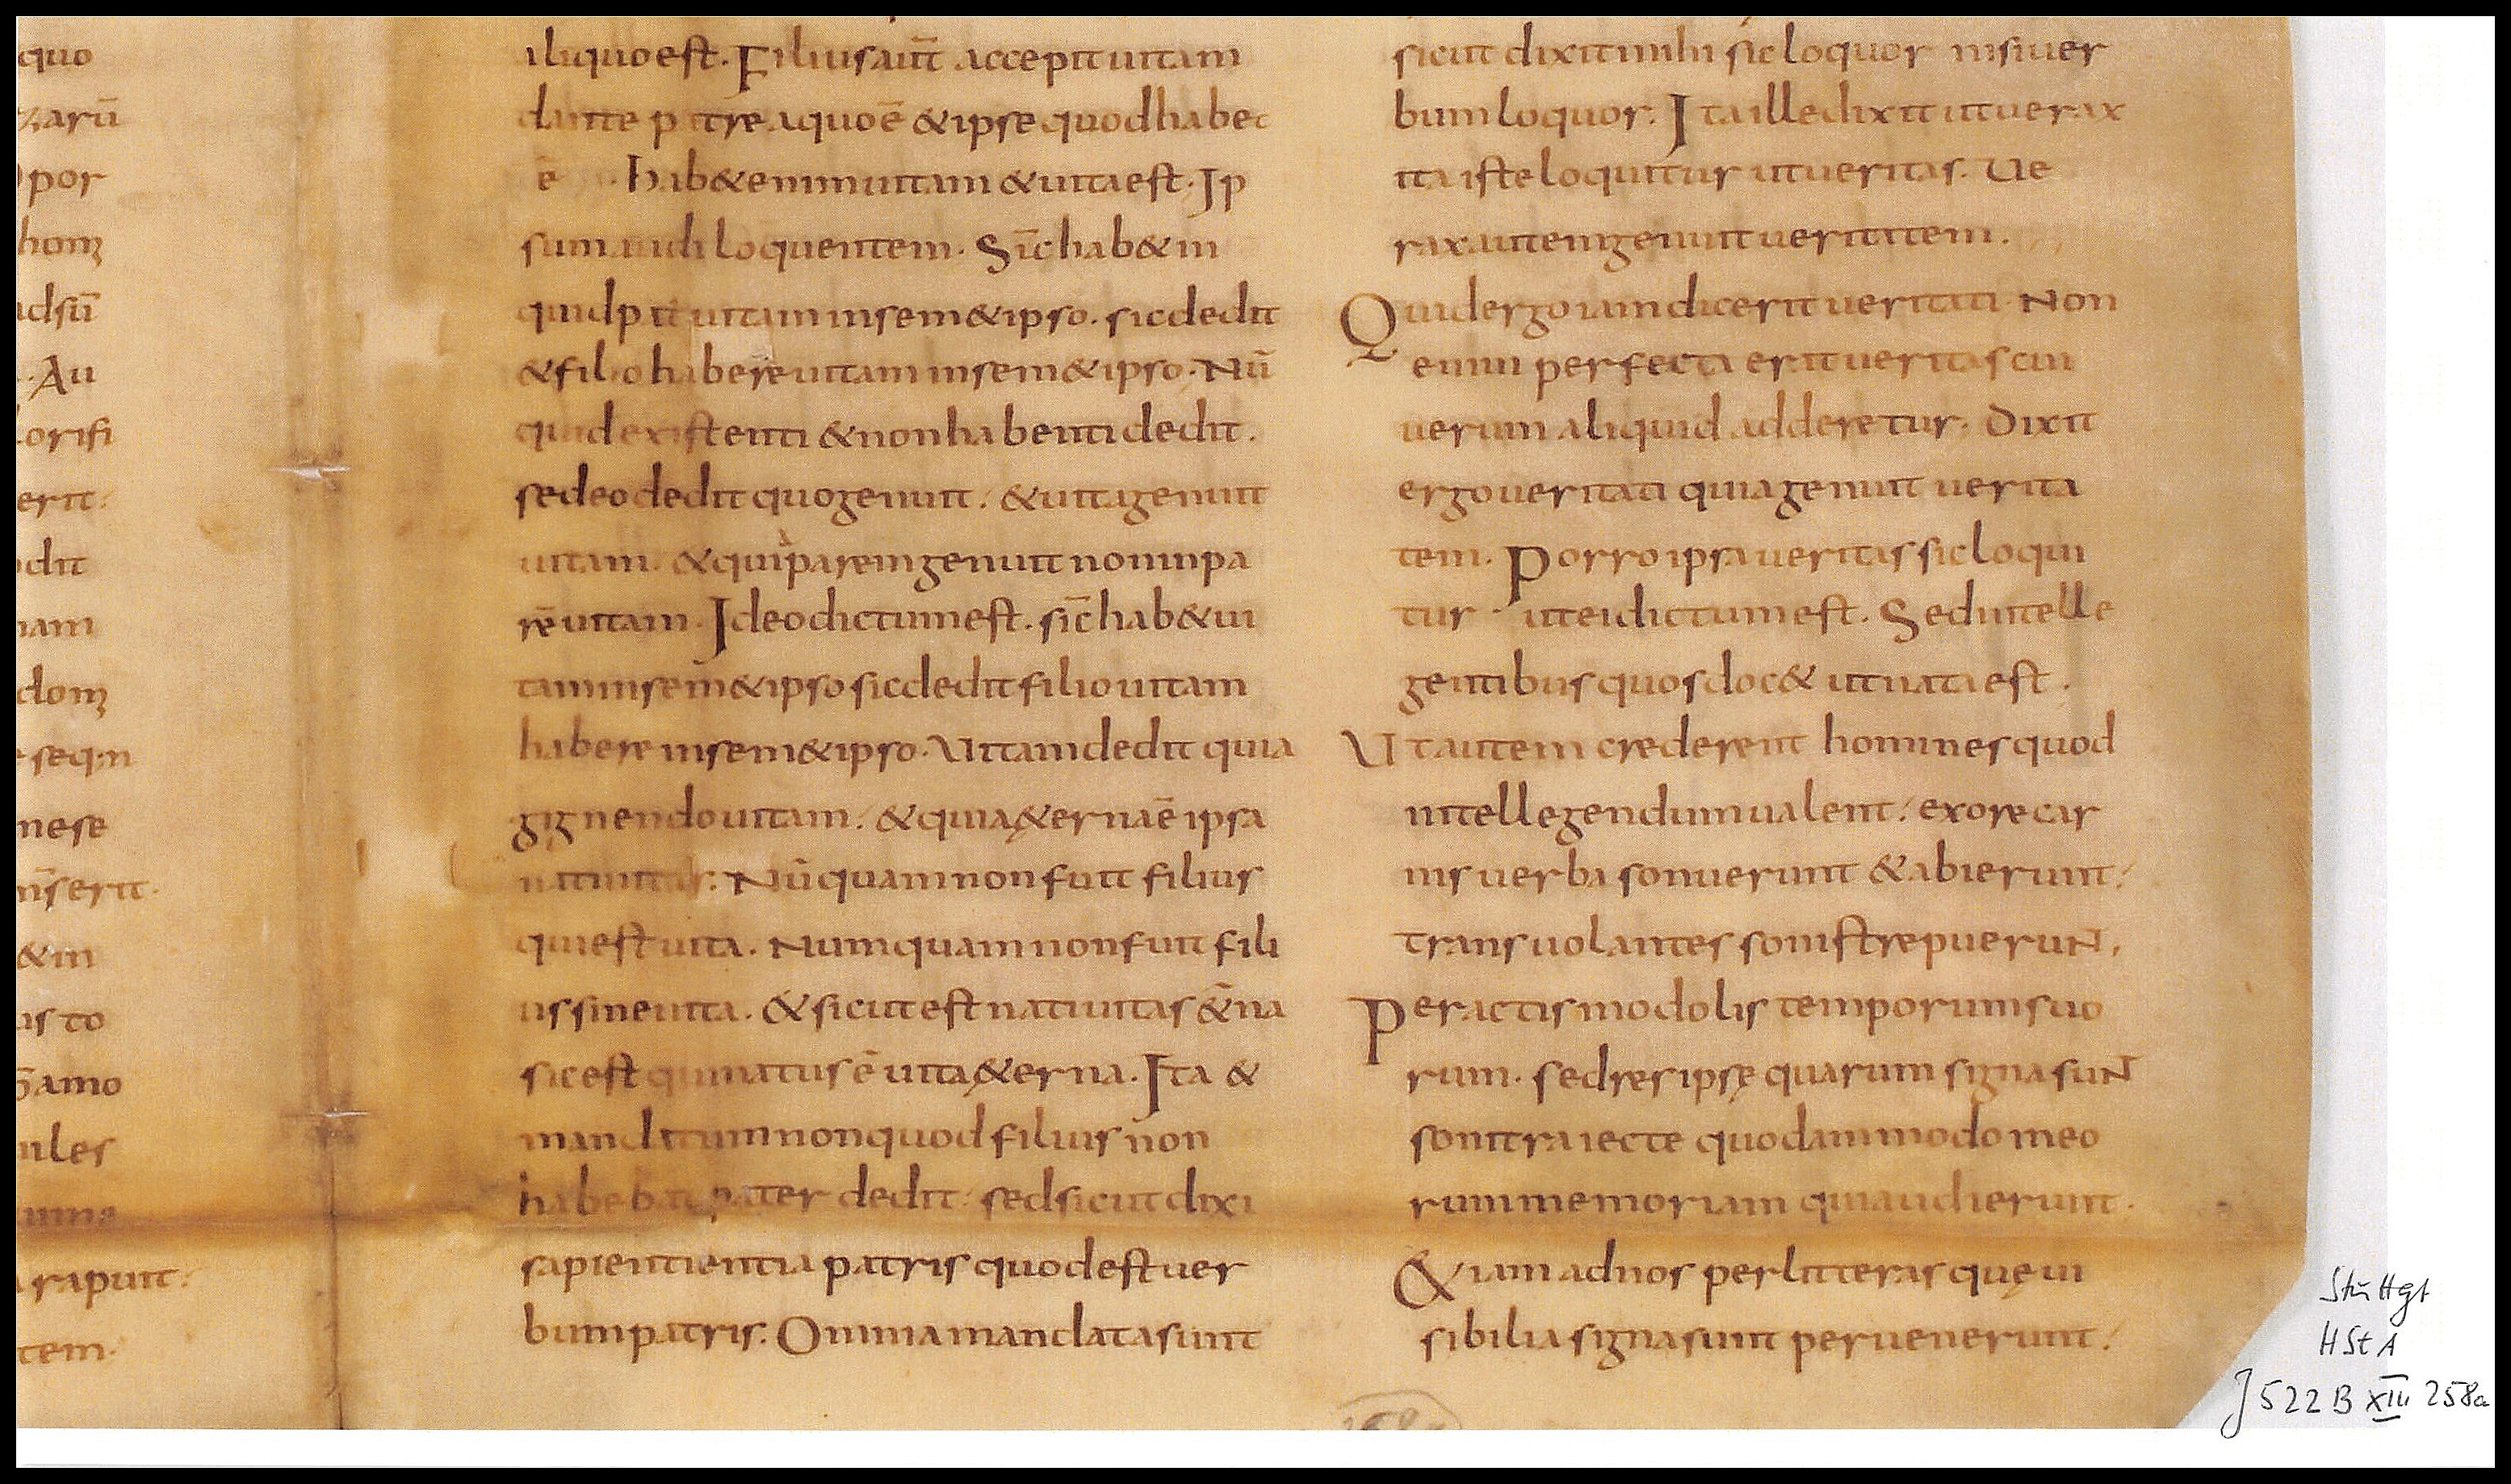 quo
zarū
por
hoin&
adsū
. Au
lorifi
erit:
odit
nam
dom&
e seq;n
nese
n̄serit.
&in
as to
h̄amo
uiles
a rapuit:
tem.
iliquoest. Filiusaūt accepituitam
dante patre aquoē &ipse quodhabet
ē . hab&enimuitam &uitaest. Ip
sum audi loquentem. Sīc hab&in
quid pat̄ uitam insem&ipso. sicdedit
&filiohabereuitam insem&ipso. Nū
quid existenti &nonhabenti dedit.
sedeodedit quogenuit. &uitagenuit
uitam. &quiaparemgenuit noninpa
rēuitam. Ideodictumest. sīc hab&ui
taminsem&ipsosicdeditfiliouitam
habere insem&ipso. Uitamdedit quia
gignendouitam. &quia&ernaē ipsa
natiuitas. Nūquamnonfuit filius
quiestuita. Numquamnonfuit fili
ussineuita. &sicutest natiuitas &̄na
sicest quinatusē uita&erna. Ita &
mandatumnonquodfilius non
habebat pater dedit. sedsicutdixi
sapientientia patris quodestuer
bumpatris. Omniamandatasunt
sicut dixitmihi sic loquor nisiuer
bumloquor. Ita illedixit utuerax
ita iste loquitur utueritas. Ue
raxautemgenuitueritatem.
Quidergoiamdicerit ueritati. Non
enim perfecta eritueritascui
uerum aliquid adderetur. Dixit
ergoueritati quiagenuit uerita
tem. Porroipsaueritassicloqui
tur uteidictumest. Sedintelle
gentibusquosdoc& utnataest.
Utautem crederent hominesquod
intellegendumualent. exorecar
nis uerba sonuerunt &abierunt.
transuolantes sonistrepueruN.
Peractismodolis temporumsuo
rum. sedres ipsę quarum signasuN
sonitraiecte quodammodo meo
rummemoriam quiaudierunt.
&iamadnos perlitterasquęui
sibiliasignasunt peruenerunt.
Stuttgt
HStA
J 522 B XIII 258a